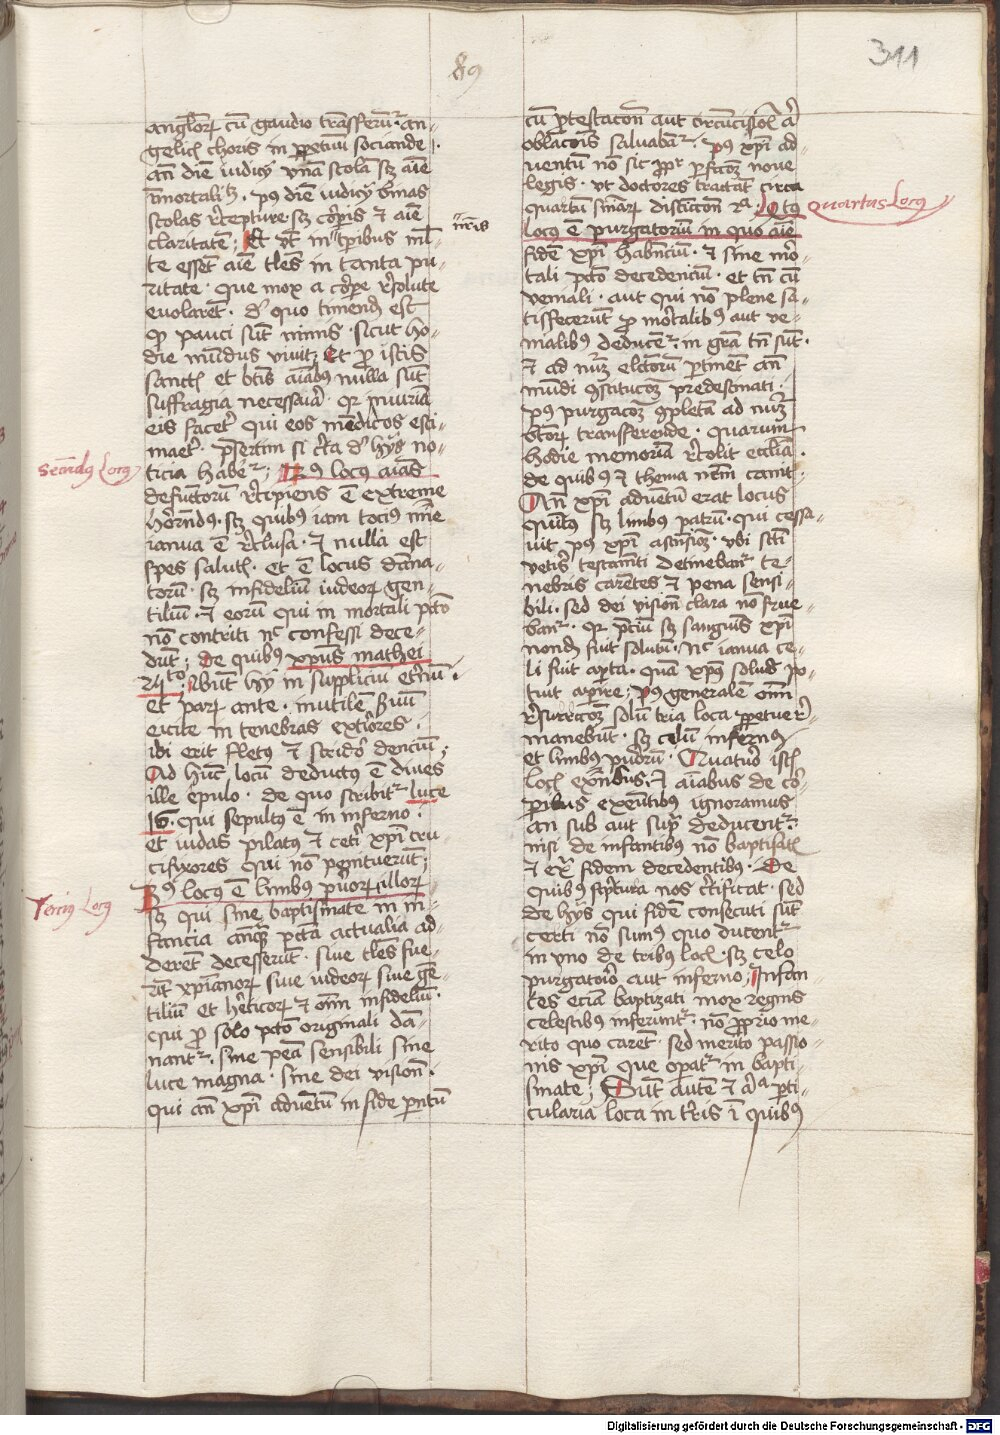 89
311
anglor cu gaudio transferut an-
gelic choris in ppetuu sociande
an die iudicij vna scola sz aie
inmortalis. p9 die iudicij binas
scolas recepture sz corpis et aie
claritate; Et vt in tpibus ml-
nris
te essent aie tles in tanta pu-
ritate que mox a corpe resolute
euolaret. de quo timend est
qp pauci sut nimis sicut ho-
die mudus viuit; et pro istis
sanctis et btis aiabus nulla sut
suffragia necessaria qr iniuria
eis facet qui eos medicos esti-
maret psertim si certa de hijs no-
Secundus Locus
ticia habet; IIus locus aiaru
defunctoru recipiens e extreme
horrendus sz quibus iam tocius mie
ianua e reclusa et nulla est
spes salutis. et e locus dana-
toru sz infideliu iudeor gen-
tiliu et eoru qui in mortali pcto
no contriti nec confessi dece-
dut; de quibus xpus mathei
24to Ibut hij in suppliciu eternu.
et paru ante. inutile seruu
eicite in tenebras exteriores.
ibi erit fletus et stridor denciu;
Ad huc locu deductus e diues
ille epulo. de quo scribit luce
16. qui sepultus e in inferno.
et iudas pilatus et ceteri xpi cru-
cifixores qui no penituerut;
Tercius Locus
3us locus e limbus puoru illor
sz qui sine baptismate in in-
fancia anqua pcta actualia ad-
deret decesserut. siue tles fue-
rit xpianor siue iudeor siue ge-
tiliu et hereticor et omi infideliu.
qui pro solo pcto originali da-
nant. sine pea sensibili sine
luce magna. sine dei vision.
qui an xpi aduetu in fide parentu
cu ptestacon aut circucision aut
oblacois saluabant. p9 xpi ad-
uentu no sic propter pfectioz noue
legis. vt doctores tractat circa
quartu sniar distinccon xxa. Quartus
Quartus Locus
locus e purgatoriu in quo aie
fide xpi habenciu. et sine mor-
tali pcto decedenciu. et tn cu
veniali. aut qui no plene sa-
tisfecerut pro mortalibus aut ve-
nialibus deducet; in gra tn sut.
et ad nuz electoru ptinet an
mudi constitucoz predestinati.
p9 purgacoz copleta ad nuz
btor transferende. quarum
hodie memoria recolit ecclia.
de quibus et thema nrm canit.
An xpi aduentu erat locus
quitus sz limbus patru. qui cessa-
uit p9 xpi ascensioz. vbi scti
veteris testamti detinebant te-
nebris carentes et pena sensi-
bili. sed dei vision clara no frue-
bant. qr pciu sz sanguis xpi
nond fuit solutu. nec ianua ce-
li fuit apta. qua xpus solus po-
tuit aperire; p9 generale omi
resurrectioz solu tria loca perpetue re-
manebut. sz celu infernus
et limbus pueroru. Quatuor istis
locis exntibus. et aiabus de cor-
poribus exeutibus ignoramus
an sub aut supra deducent.
nisi de infantibus no baptisatis
et extra fidem decedentibus. de
quibus scptura nos certificat. sed
de hijs qui fide consecuti sut
certi no sumus quo ducent
in vno de tribus locis. sz celo
purgatorio aut inferno; Infan
tes ecia baptizati mox regnis
celestibus inferunt. no proprio me-
rito quo caret. sed merito passio-
nis xpi que opat in bapti-
smate; Sut aute et alia parti-
cularia loca in terris i quibus
Digitalisierung gefördert durch die Deutsche Forschungsgemeinschaft - DFG